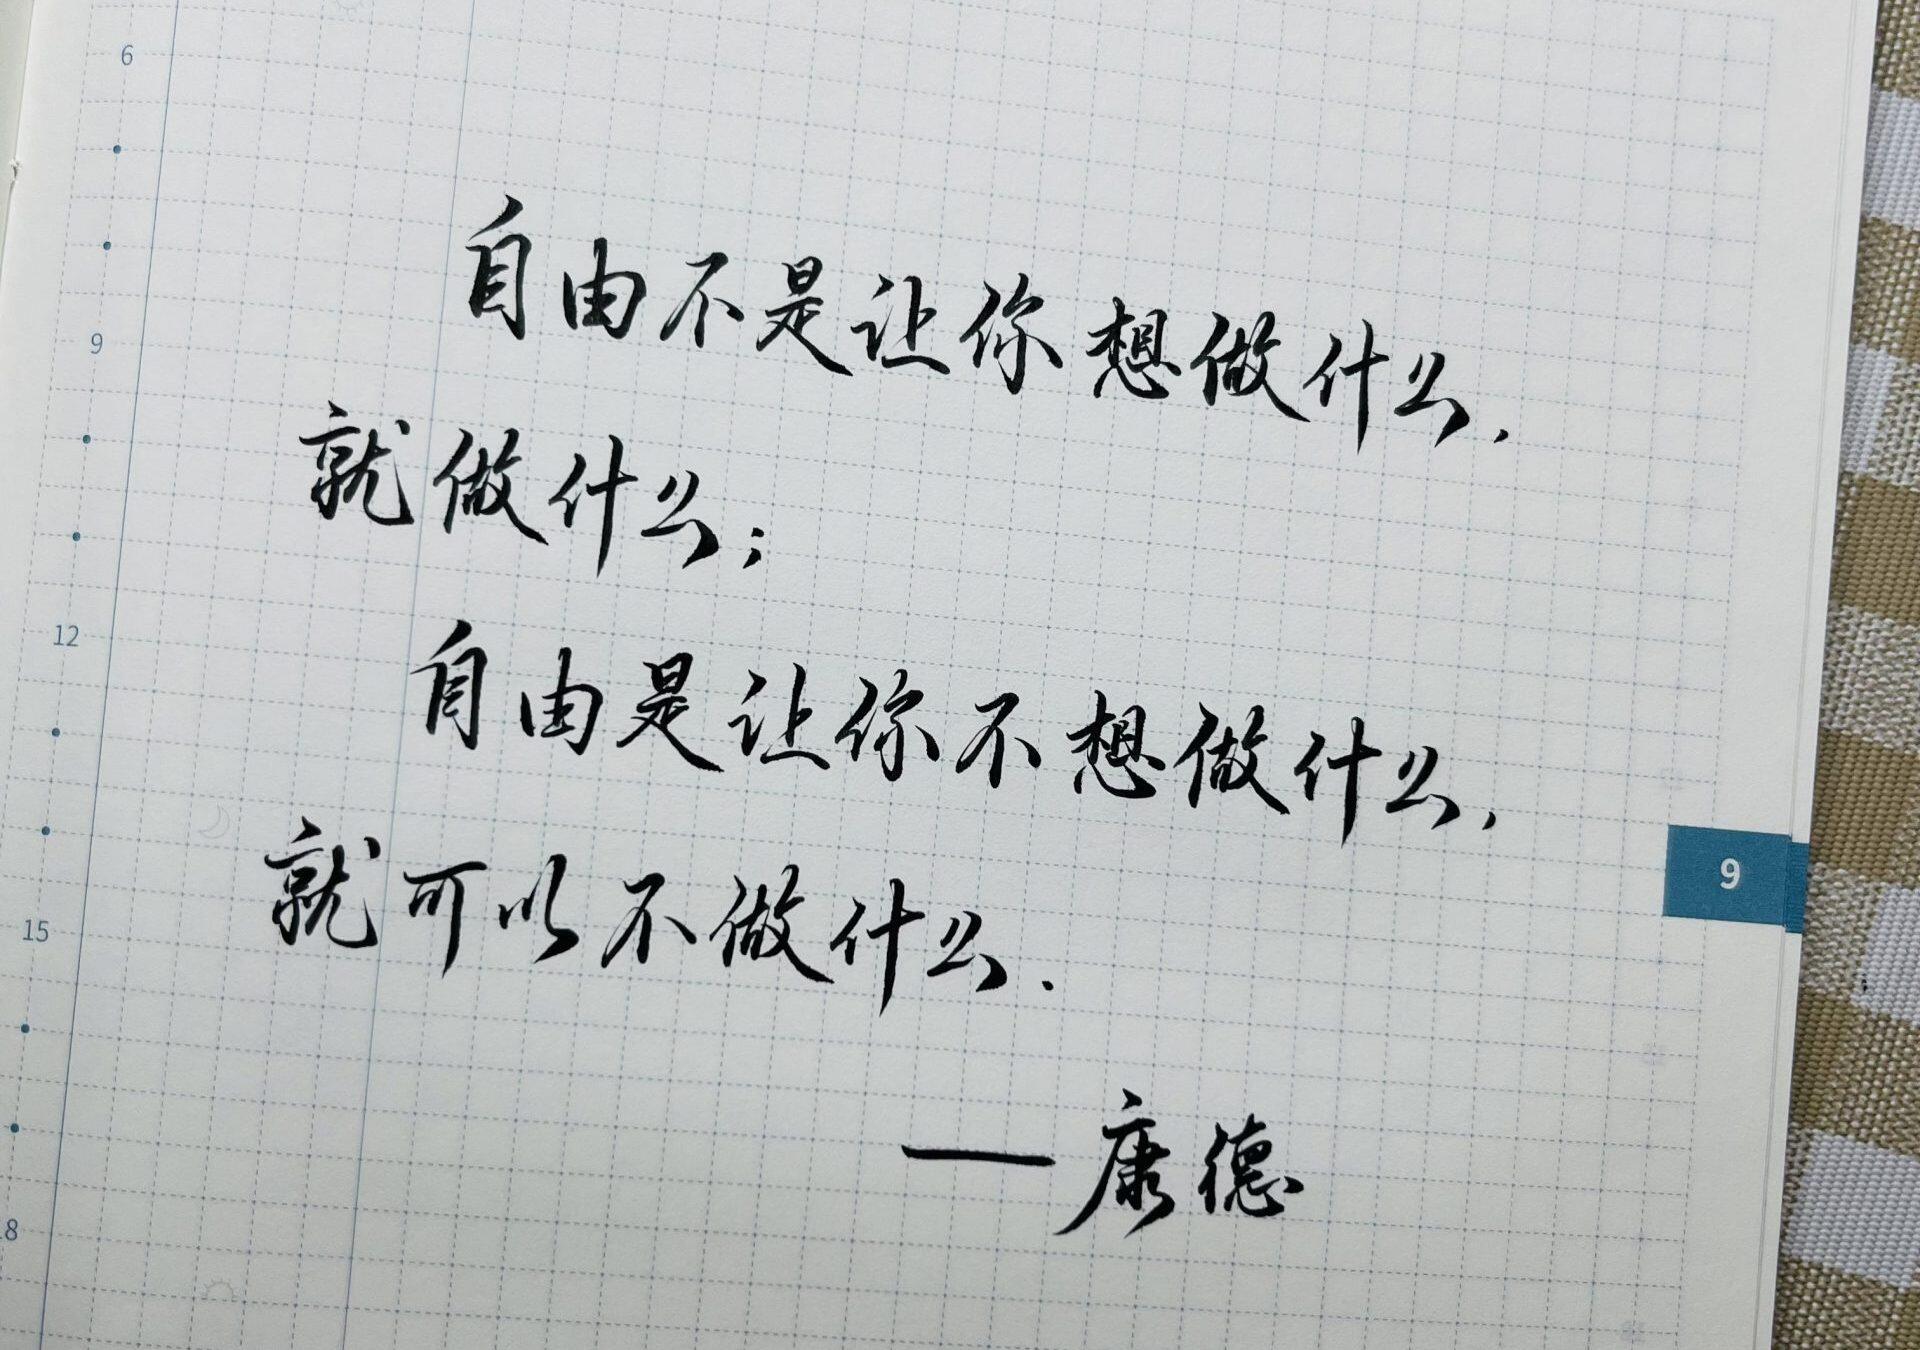 6
自由不是让你想做什么,
9
就做什么;
12
自由是让你不想做什么,
9
就可以不做什么.
15
——康德
18